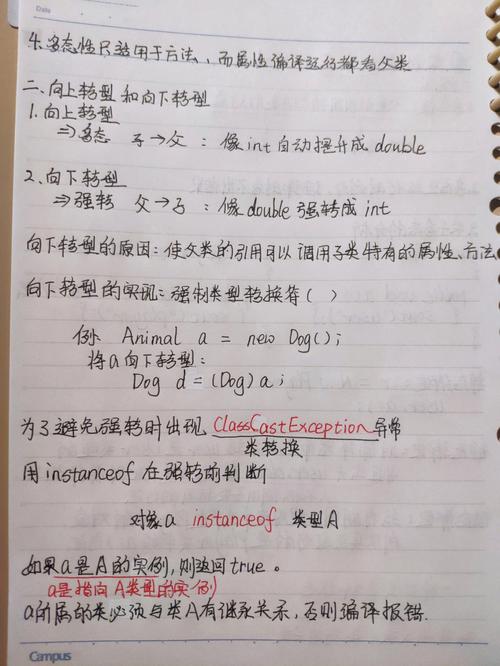 Date
4.多态性只适用于方法，而属性编译运行都看父类
二.向上转型和向下转型
1.向上转型
⇒多态 子→父：像int自动提升成double
2.向下转型
⇒强转 父→子：像double强转成int
向下转型的原因：使父类的引用可以调用子类特有的属性、方法
向下转型的实现：强制类型转换符（ ）
例： Animal a = new Dog();
将a向下转型：
Dog d = (Dog) a;
为了避免强转时出现 ClassCastException异常
类转换
用instanceof在强转前判断
对象a instanceof 类型A
如果a是A的实例，则返回true。
a是指向A类型的实例
a所属的类必须与类A有继承关系，否则编译报错.
Campus